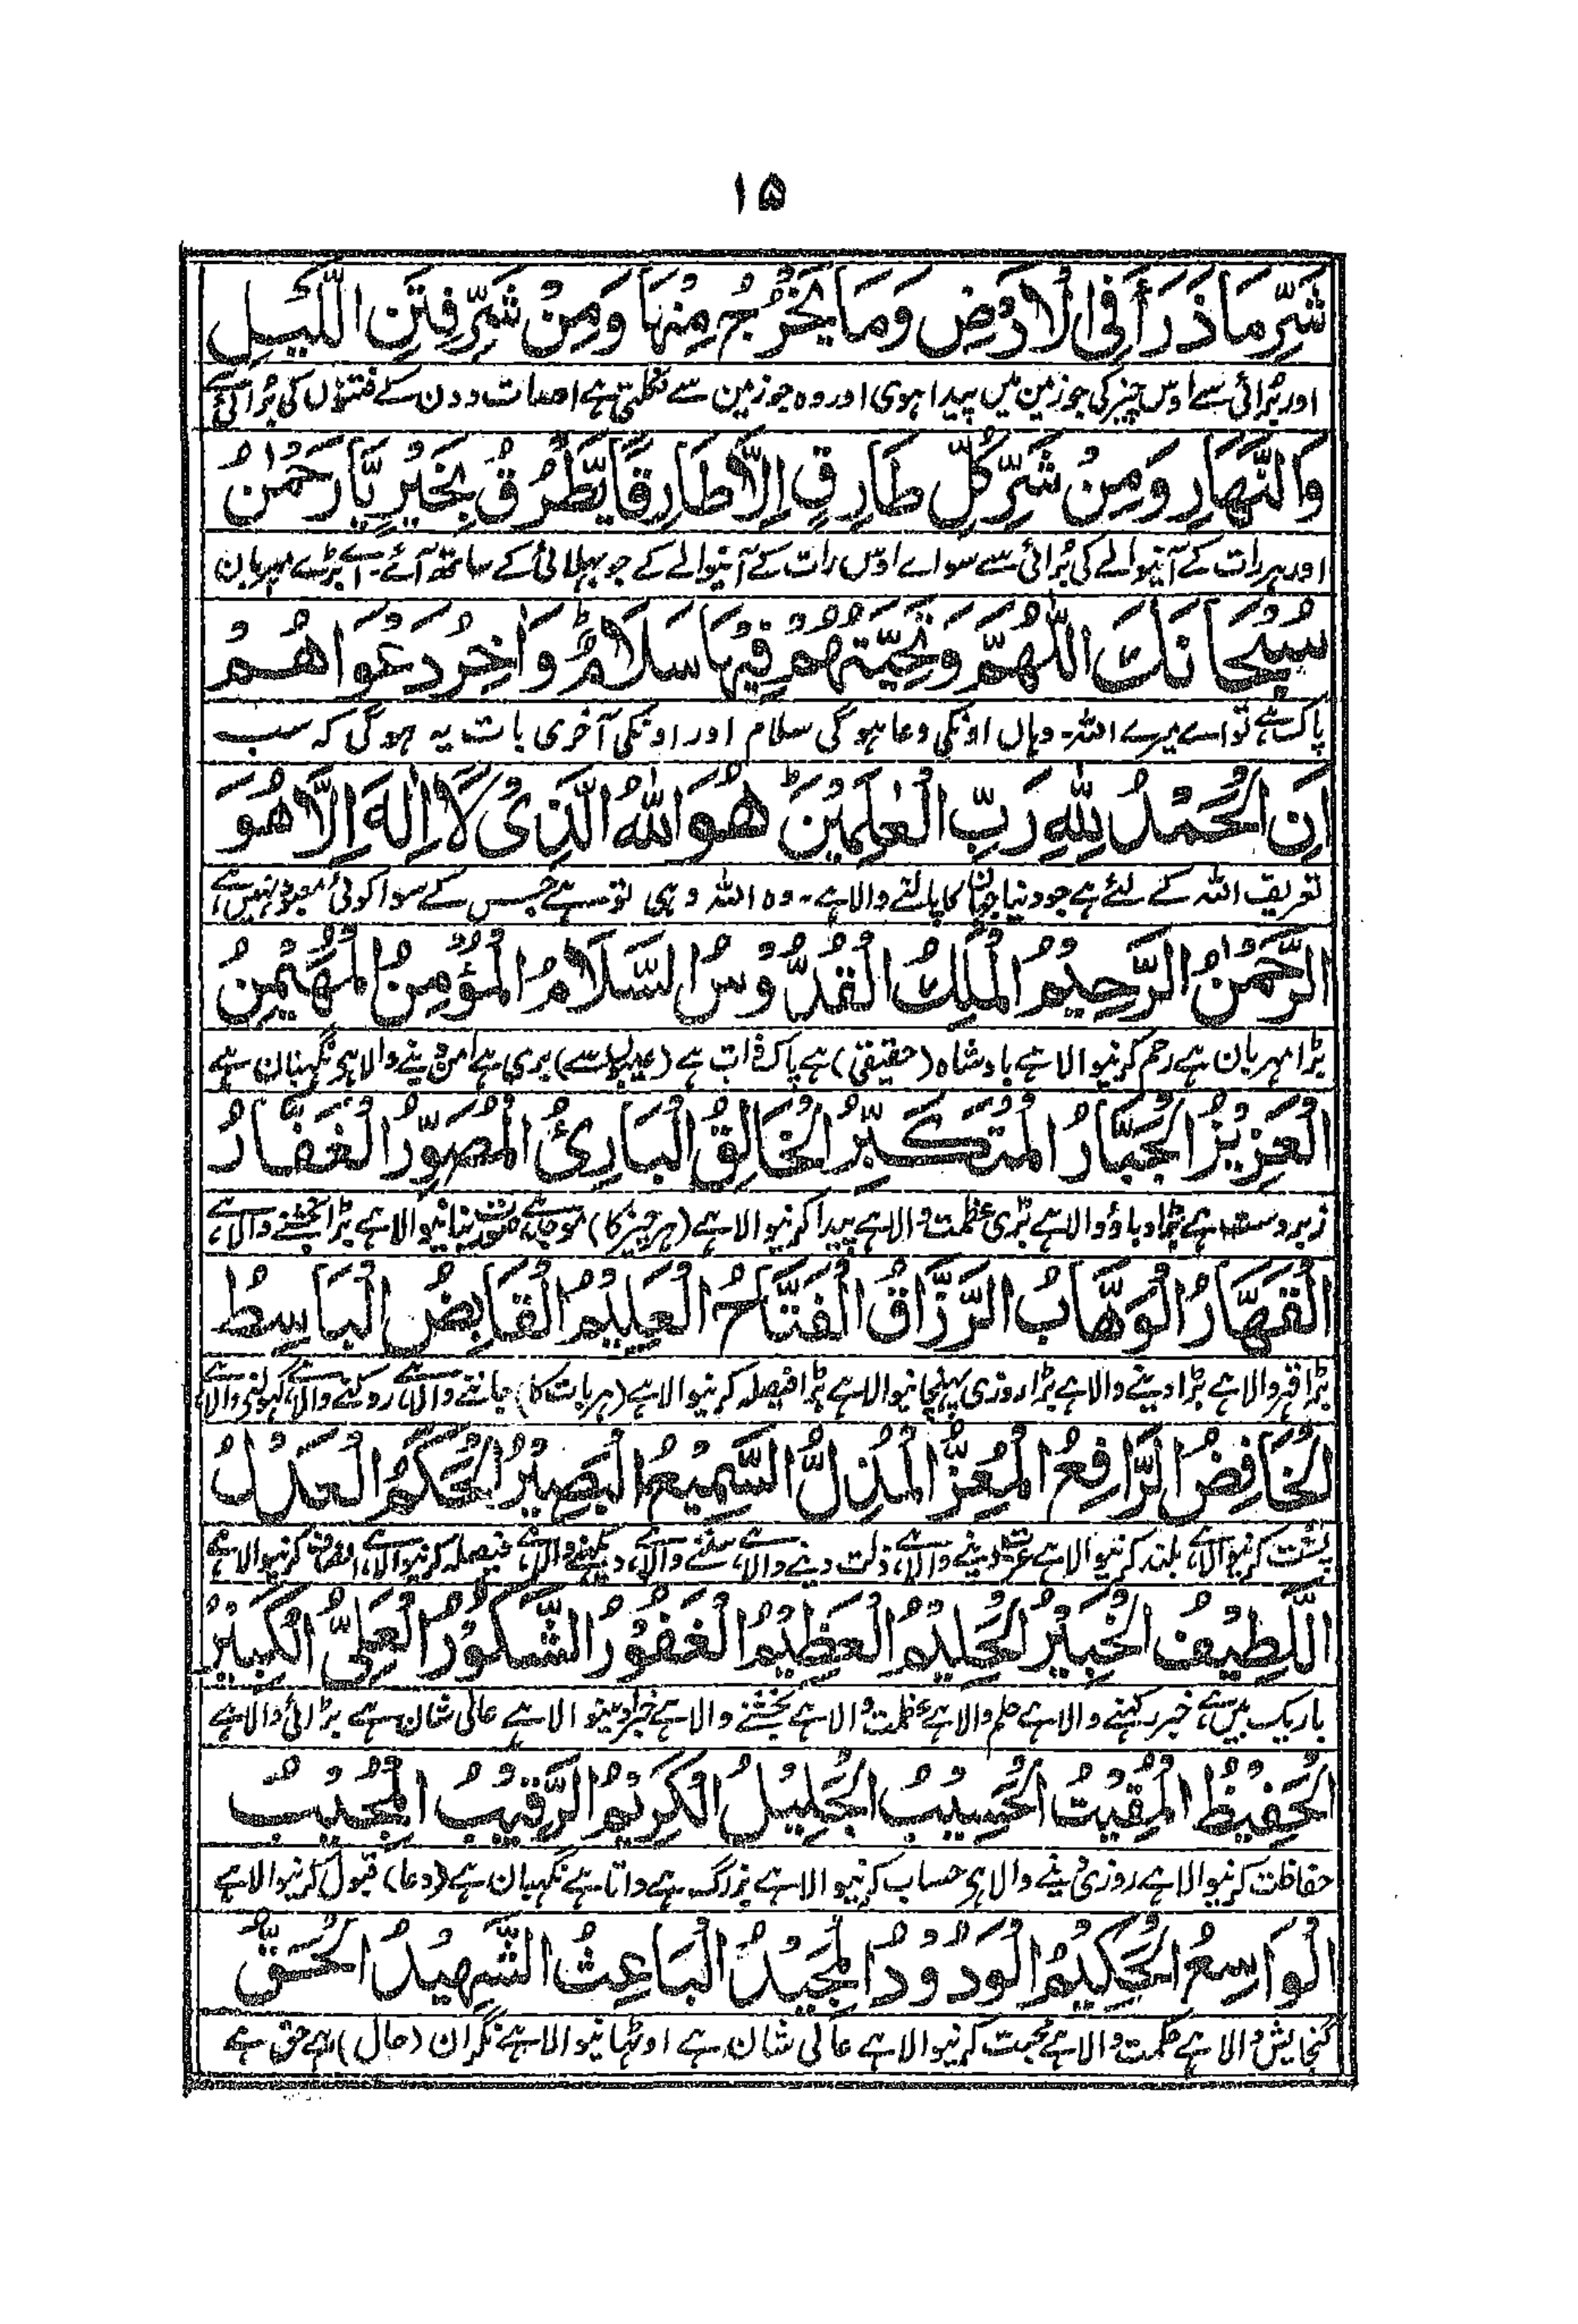 ۱۵
شَرِّ مَا ذَرَأَ فِی الْاَرْضِ وَمَا یَخْرُجُ مِنْهَا وَمِنْ شَرِّ فِتَنِ اللَّیْلِ
اور بُرائی سے اوس چیز کی جو زمین میں پیدا ہوی اور وہ جو زمین سے نکلتی ہے اور رات و دن کے فتنوں کی بُرائی سے
وَالنَّهَارِ وَمِنْ شَرِّ كُلِّ طَارِقٍ اِلَّا طَارِقًا یَّطْرُقُ بِخَیْرٍ یَّا رَحْمٰنُ
اور ہر رات کے آنیوالے کی بُرائی سے سواے اوس رات کے آنیوالے کے جو بہلائی کے ساتھ آئے۔ اے بڑے مہربان
سُبْحَانَكَ اللّٰهُمَّ وَتَحِیَّتُهُمْ فِیْهَا سَلَامٌ ؕ وَاٰخِرُ دَعْوَاهُمْ
پاک ہے تو اے میرے اللہ۔ وہاں اونکی دعا ہوگی سلام اور اونکی آخری بات یہ ہوگی کہ سب
اَنِ الْحَمْدُ لِلّٰهِ رَبِّ الْعٰلَمِیْنَ ؕ هُوَ اللّٰهُ الَّذِیْ لَا اِلٰهَ اِلَّا هُوَ
تعریف اللہ کے لئے ہے جو دنیا جہان کا پالنے والا ہے۔ وہ اللہ وہی تو ہے جس کے سوا کوئی معبود نہیں ہے
الرَّحْمٰنُ الرَّحِیْمُ الْمَلِكُ الْقُدُّوْسُ السَّلَامُ الْمُؤْمِنُ الْمُهَیْمِنُ
بڑا مہربان ہے رحم کرنیوالا ہے بادشاہ (حقیقی) ہے پاک ذات ہے (عیبوں سے) بری ہے امن دینے والا ہی نگہبان ہے
الْعَزِیْزُ الْجَبَّارُ الْمُتَكَبِّرُ الْخَالِقُ الْبَارِئُ الْمُصَوِّرُ الْغَفَّارُ
زبردست ہے بڑا دباؤ والا ہے بڑی عظمت والا ہے پیدا کرنیوالا ہے (ہر چیز کا) موجد ہے صورت بنانیوالا ہے بڑا بخشنے والا ہے
الْقَهَّارُ الْوَهَّابُ الرَّزَّاقُ الْفَتَّاحُ الْعَلِیْمُ الْقَابِضُ الْبَاسِطُ
بڑا قہر والا ہے بڑا دینے والا ہے بڑا روزی پہنچانیوالا ہے بڑا فیصلہ کرنیوالا ہے (ہر بات کا) جاننے والا ہے روکنے والا ہے کہولنے والا ہے
الْخَافِضُ الرَّافِعُ الْمُعِزُّ الْمُذِلُّ السَّمِیْعُ الْبَصِیْرُ الْحَكَمُ الْعَدْلُ
پست کرنیوالا ہے بلند کرنیوالا ہے عزت دینے والا ہے ذلت دینے والا ہے سننے والا ہے دیکہنے والا ہے فیصلہ کرنیوالا ہے انصاف کرنیوالا ہے
اللَّطِیْفُ الْخَبِیْرُ الْحَلِیْمُ الْعَظِیْمُ الْغَفُوْرُ الشَّكُوْرُ الْعَلِیُّ الْكَبِیْرُ
باریک بیں ہے خبر رکہنے والا ہے حلم والا ہے عظمت والا ہے بخشنے والا ہے جزا دینوالا ہے عالی شان ہے بڑائی والا ہے
الْحَفِیْظُ الْمُقِیْتُ الْحَسِیْبُ الْجَلِیْلُ الْكَرِیْمُ الرَّقِیْبُ الْمُجِیْبُ
حفاظت کرنیوالا ہے روزی دینے والا ہی حساب کرنیوالا ہے بزرگ ہے داتا ہے نگہبان ہے (دعا) قبول کرنیوالا ہے
الْوَاسِعُ الْحَكِیْمُ الْوَدُوْدُ الْمَجِیْدُ الْبَاعِثُ الشَّهِیْدُ الْحَقُّ
گنجایش والا ہے حکمت والا ہے محبت کرنیوالا ہے عالی شان ہے اوٹہانیوالا ہے نگران (حال) ہے حق ہے